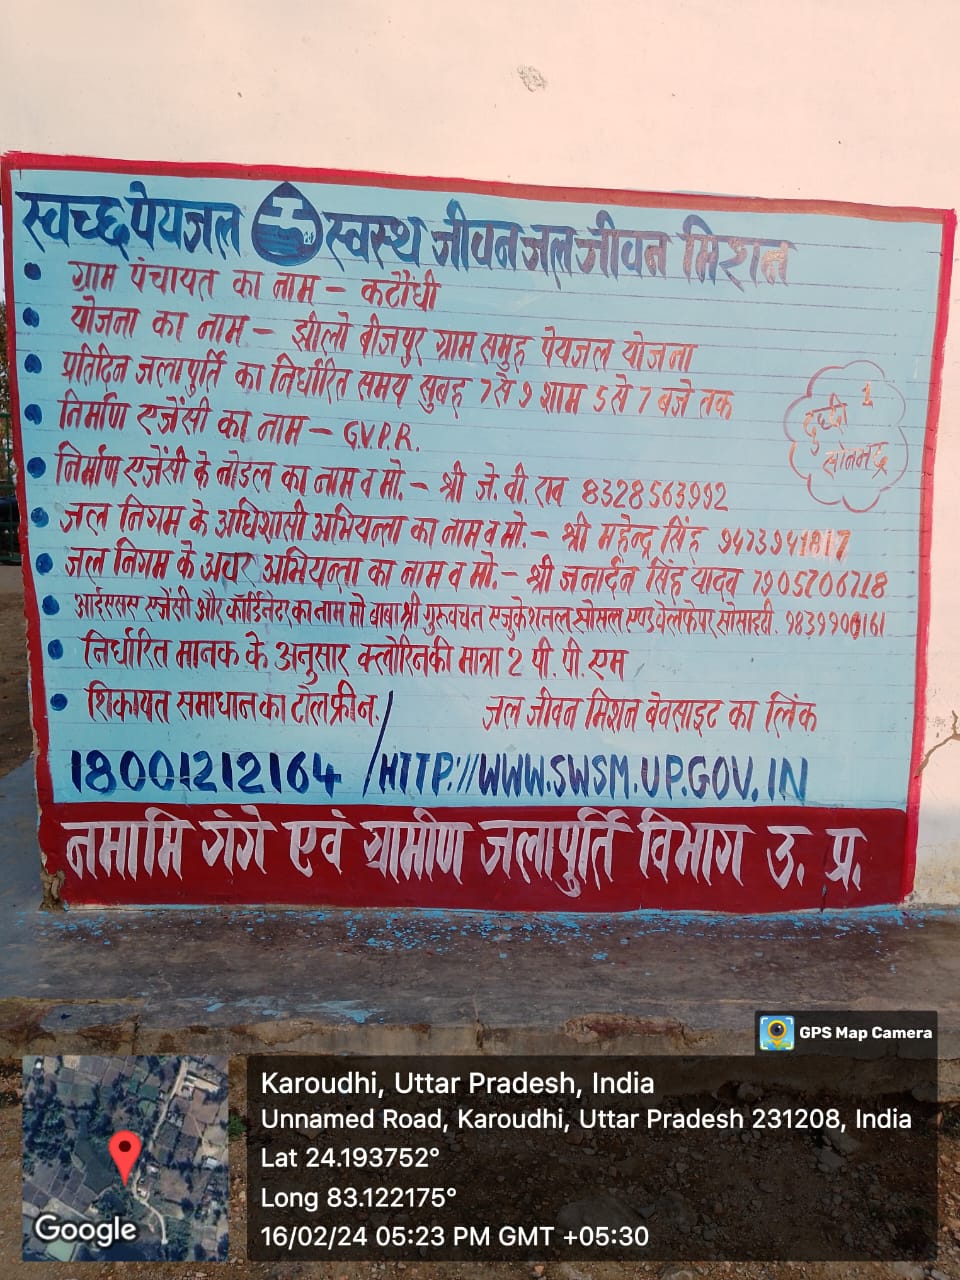 स्वच्छ पेयजल स्वस्थ जीवन जल जीवन मिशन
ग्राम पंचायत का नाम - करौंधी
योजना का नाम - झीलो बीजपुर ग्राम समुह पेयजल योजना
प्रतिदिन जलापुर्ति का निर्धारित समय सुबह 7 से 9 शाम 5 से 7 बजे तक
निर्माण एजेंसी का नाम - G.V.P.R.
दुध्दी 1
सोनभद्र
निर्माण एजेंसी के नोडल का नाम व मो. - श्री जे. वी. राव 8328563992
जल निगम के अधिशासी अभियन्ता का नाम व मो. - श्री महेन्द्र सिंह 9473941817
जल निगम के अवर अभियन्ता का नाम व मो. - श्री जनार्दन सिंह यादव 7905706718
आईएसएस एजेंसी और कॉर्डिनेटर का नाम मो बाबा श्री गुरुवचन एजुकेशनल सोसल एण्ड वेलफेयर सोसाइटी. 9839900161
निर्धारित मानक के अनुसार क्लोरिन की मात्रा 2 पी. पी. एम
शिकायत समाधान का टोल फ्री न. / जल जीवन मिशन बेवसाइट का लिंक
18001212164 / HTTP://WWW.SWSM.UP.GOV.IN
नमामि गंगे एवं ग्रामीण जलापुर्ति विभाग उ. प्र.
GPS Map Camera
Karoudhi, Uttar Pradesh, India
Unnamed Road, Karoudhi, Uttar Pradesh 231208, India
Lat 24.193752°
Long 83.122175°
16/02/24 05:23 PM GMT +05:30
Google